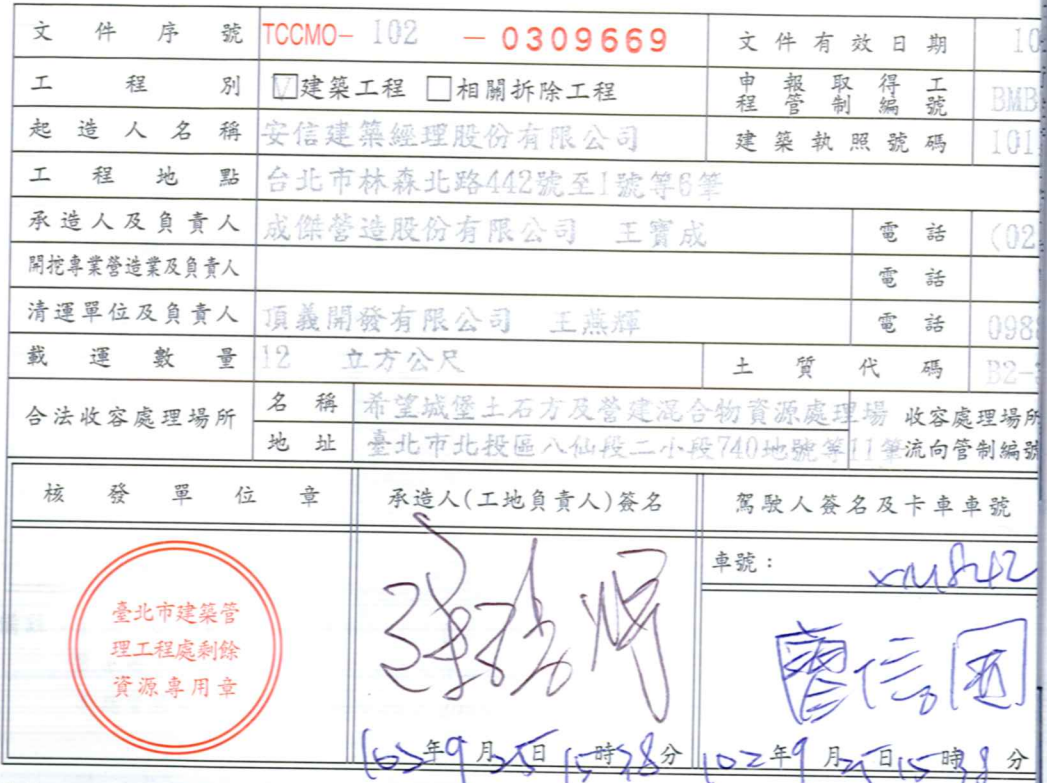 文件序號 TCCMO- 102 - 0309669 文件有效日期 10
工程別 ☑建築工程 □相關拆除工程 申報取得工程管制編號 BMB
起造人名稱 安信建築經理股份有限公司 建築執照號碼 101
工程地點 台北市林森北路442號至1號等6筆
承造人及負責人 成傑營造股份有限公司 王寶成 電話 (02
開挖專業營造業及負責人 電話
清運單位及負責人 頂義開發有限公司 王燕輝 電話 098
載運數量 12 立方公尺 土質代碼 B2-
合法收容處理場所 名稱 希望城堡土石方及營建混合物資源處理場 收容處理場所
地址 臺北市北投區八仙段二小段740地號等11筆 流向管制編號
核發單位章 承造人(工地負責人)簽名 駕駛人簽名及卡車車號
車號：
臺北市建築管
理工程處剩餘
資源專用章
信
102年9月25日15時38分 102年9月25日15時38分